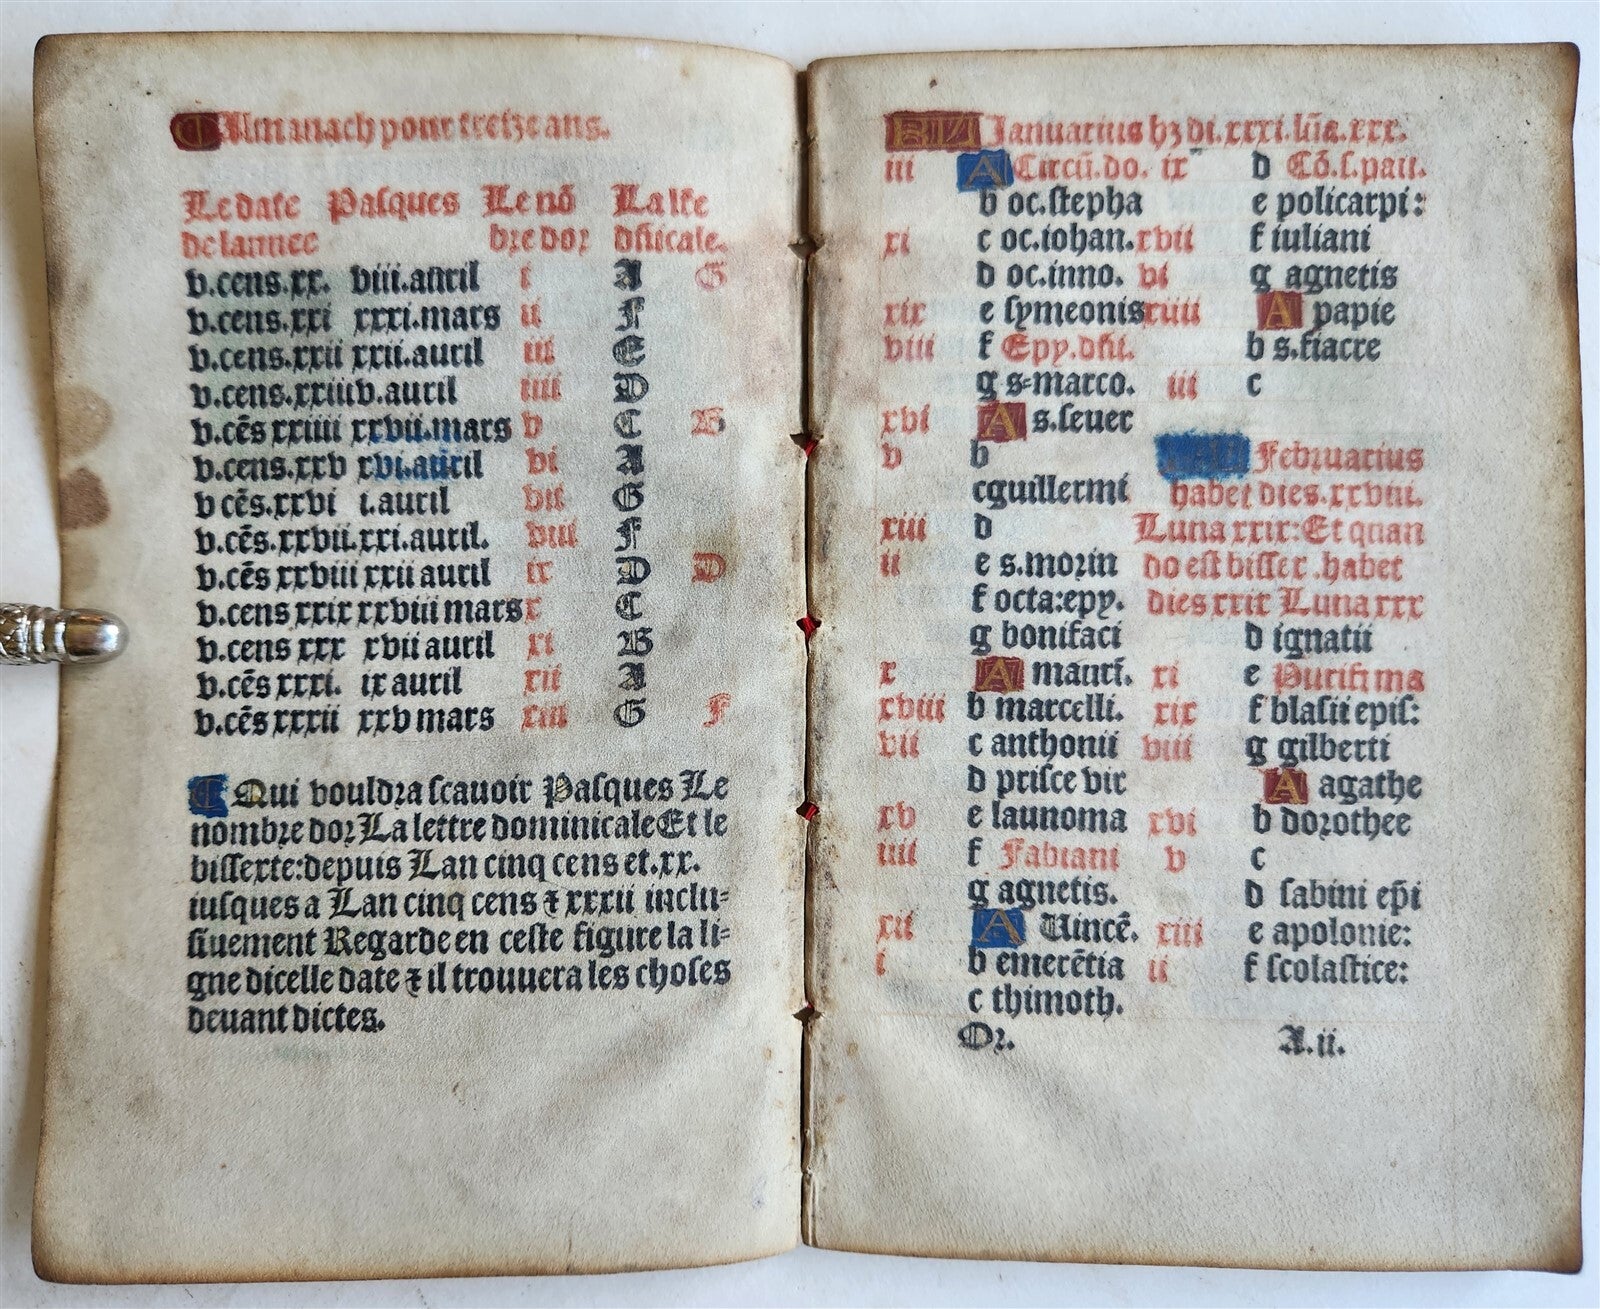 Almanach pour treize ans.
Le date Pasques Le nō La lr̄e
de lannee bre dor dn̄icale.
v.cens.xx. viii.auril i A G
v.cens.xxi xxxi.mars ii F
v.cens.xxii xxii.auril iii E
v.cens.xxiii v.auril iiii D
v.cēs xxiiii xxvii.mars v C B
v.cens.xxv xvi.auril vi A
v cēs.xxvi i.auril vii G
v.cēs.xxvii.xxi.auril. viii F
v.cēs xxviii xxii auril ix D D
v.cens xxix xxviii mars x C
v.cens xxx xvii auril xi B
v.cēs xxxi. ix auril xii A
v.cēs xxxii xxv mars xiii G F
Qui vouldra scauoir Pasques Le
nombre dor La lettre dominicale Et le
bissexte:depuis Lan cinq cens et.xx.
iusques a Lan cinq cens ⁊ xxxii inclu-
siuement Regarde en ceste figure la li-
gne dicelle date ⁊ il trouuera les choses
deuant dictes.
KL Ianuarius hz di.xxxi.lūa.xxx.
iii A Circū.do.
b oc.stepha
xi c oc.iohan.
d oc.inno.
xix e symeonis
viii f Epy.dn̄i.
g s-marco.
xvi A s.seuer
v b
c guillermi
xiii d
ii e s.morin
f octa:epy.
g bonifaci
x A maurī.
xviii b marcelli.
vii c anthonii
d prisce vir
xv e launoma
iiii f Fabiani
g agnetis.
xii A Uincē.
i b emerētia
c thimoth.
ix d Cō.s.pau.
e policarpi:
xvii f iuliani
vi g agnetis
xiiii A papie
b s.fiacre
iii c
KL Februarius
habet dies.xxviii.
Luna xxix:Et quan
do est bissex.habet
dies xxix Luna xxx
d ignatii
xi e Purifi ma
xix f blasii epis:
viii g gilberti
A agathe
xvi b dorothee
v c
d sabini ep̄i
xiii e apolonie:
ii f scolastice:
Or. A.ii.